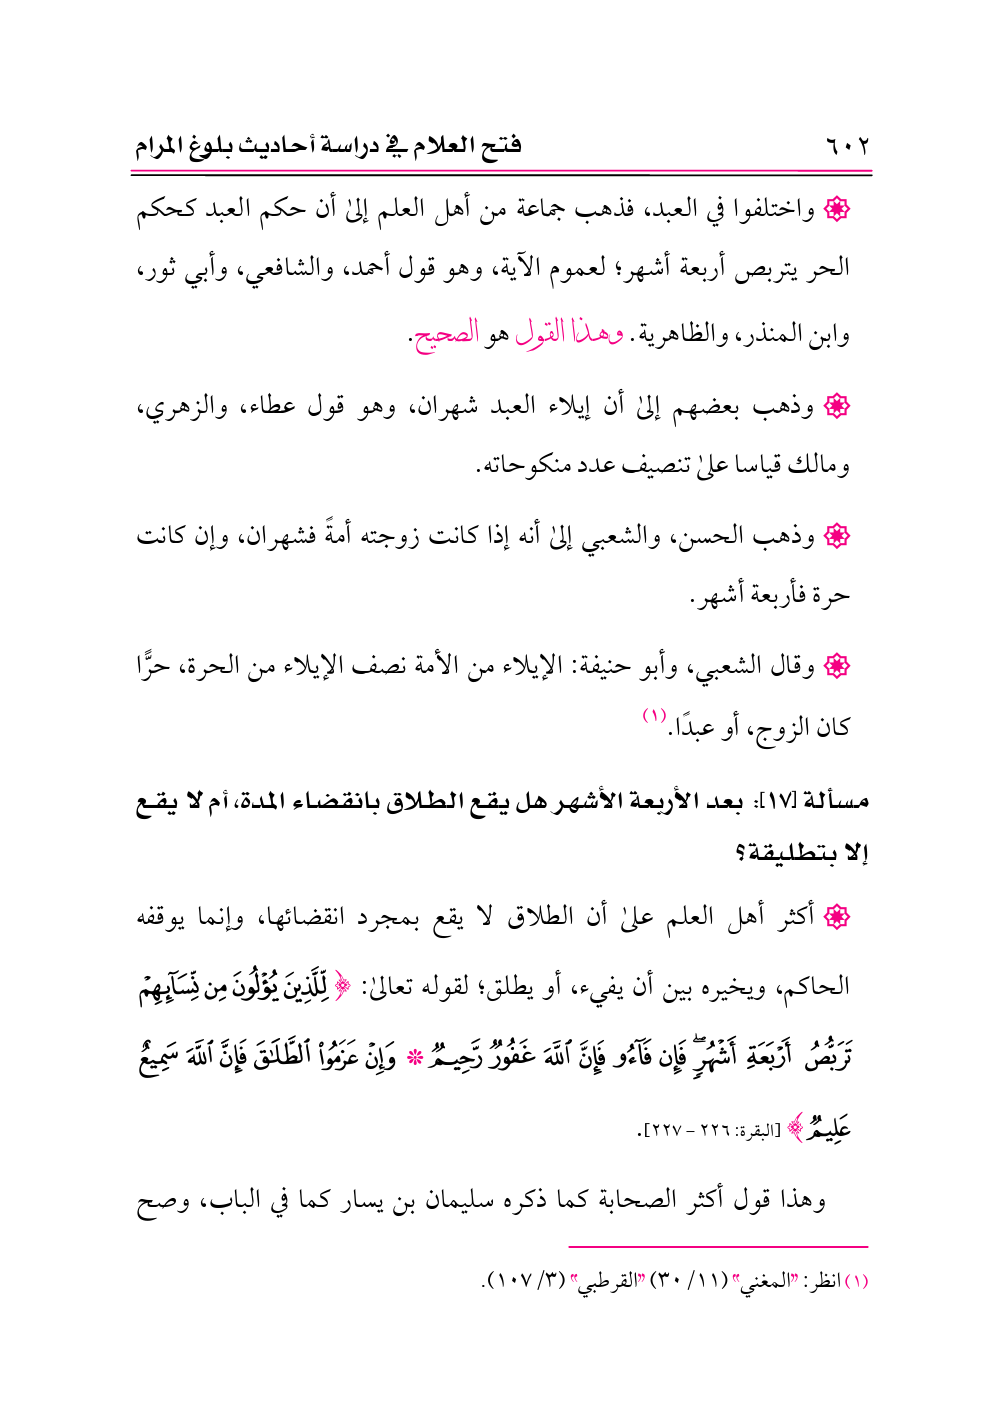 ٦٠٢ فتح العلام في دراسة أحاديث بلوغ المرام
واختلفوا في العبد، فذهب جماعة من أهل العلم إلىٰ أن حكم العبد كحكم
الحر يتربص أربعة أشهر؛ لعموم الآية، وهو قول أحمد، والشافعي، وأبي ثور،
وابن المنذر، والظاهرية. وهذا القول هو الصحيح.
وذهب بعضهم إلىٰ أن إيلاء العبد شهران، وهو قول عطاء، والزهري،
ومالك قياسا علىٰ تنصيف عدد منكوحاته.
وذهب الحسن، والشعبي إلىٰ أنه إذا كانت زوجته أمةً فشهران، وإن كانت
حرة فأربعة أشهر.
وقال الشعبي، وأبو حنيفة: الإيلاء من الأمة نصف الإيلاء من الحرة، حرًّا
كان الزوج، أو عبدًا.(١)
مسألة [١٧]: بعد الأربعة الأشهر هل يقع الطلاق بانقضاء المدة، أم لا يقع
إلا بتطليقة؟
أكثر أهل العلم علىٰ أن الطلاق لا يقع بمجرد انقضائها، وإنما يوقفه
الحاكم، ويخيره بين أن يفيء، أو يطلق؛ لقوله تعالىٰ: ﴿لِّلَّذِينَ يُؤۡلُونَ مِن نِّسَآئِهِمۡ
تَرَبُّصُ أَرۡبَعَةِ أَشۡهُرٖۖ فَإِن فَآءُو فَإِنَّ ٱللَّهَ غَفُورٞ رَّحِيمٞ * وَإِنۡ عَزَمُواْ ٱلطَّلَٰقَ فَإِنَّ ٱللَّهَ سَمِيعٌ
عَلِيمٞ﴾ [البقرة: ٢٢٦ – ٢٢٧].
وهذا قول أكثر الصحابة كما ذكره سليمان بن يسار كما في الباب، وصح
(١) انظر: "المغني" (١١/ ٣٠) "القرطبي" (٣/ ١٠٧).